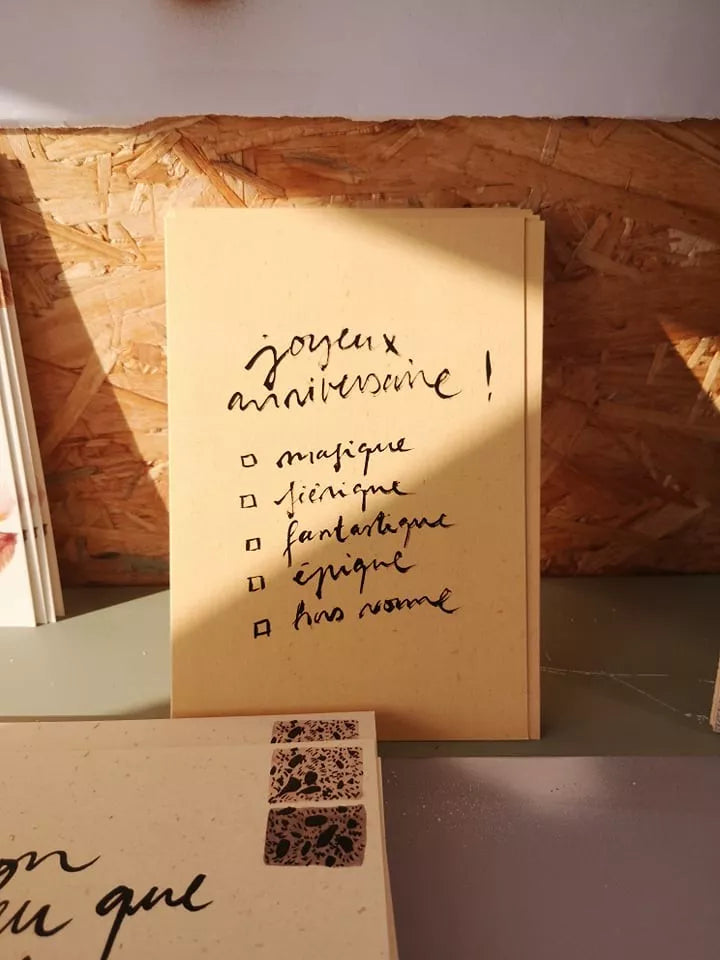 joyeux
anniversaire !
magique
féérique
fantastique
épique
hors norme
on
eu que